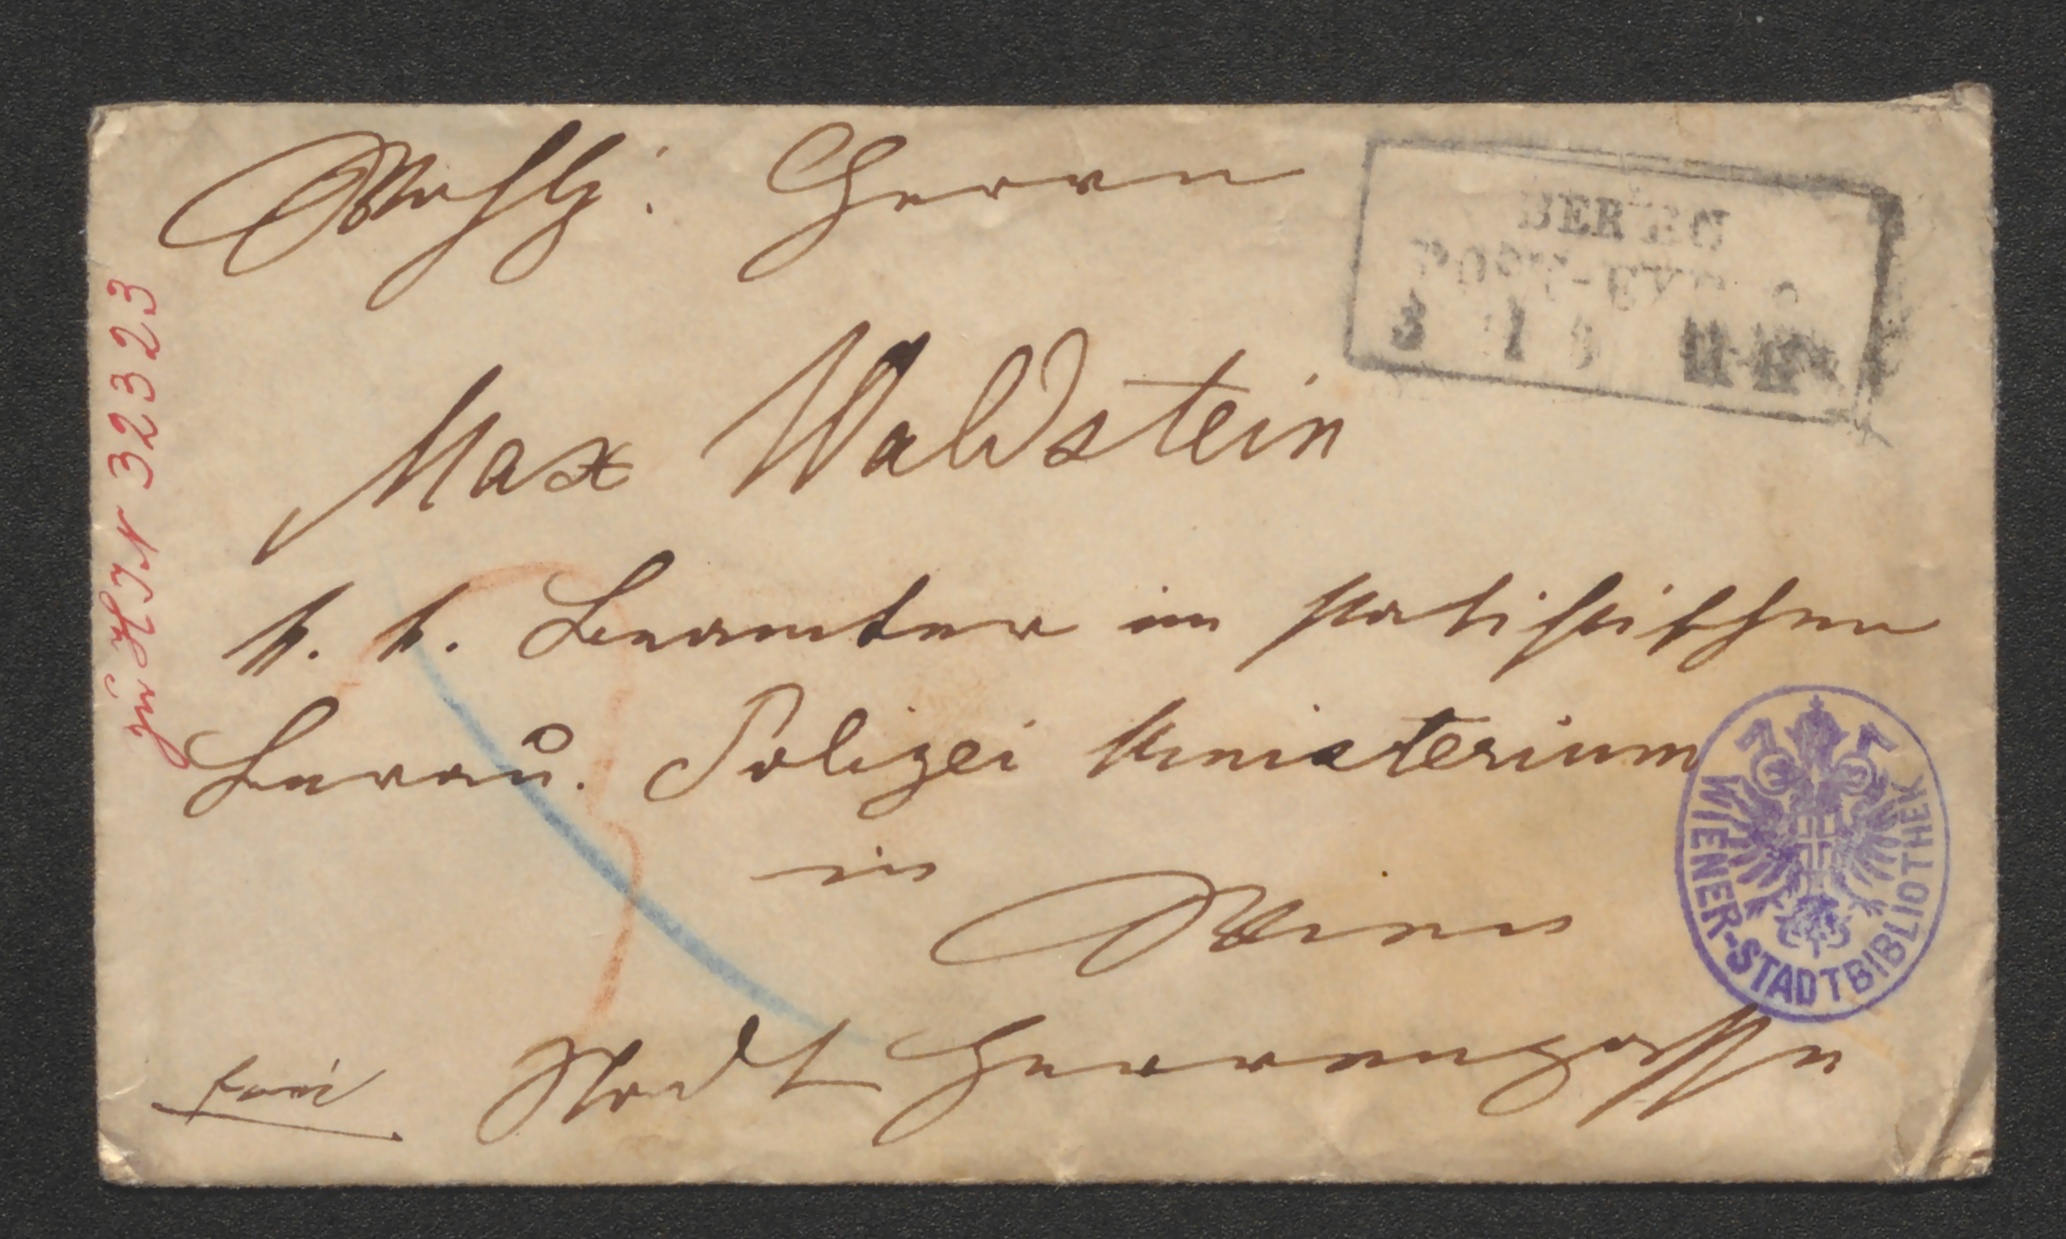 Wohlg: Herrn
Max Waldstein
k. k. Beamter im statistischen
Bureau. Polizei Ministerium
in
Wien
Stadt Herrengasse
frei
zu H I N 32323
3 1
WIENER-STADTBIBLIOTHEK